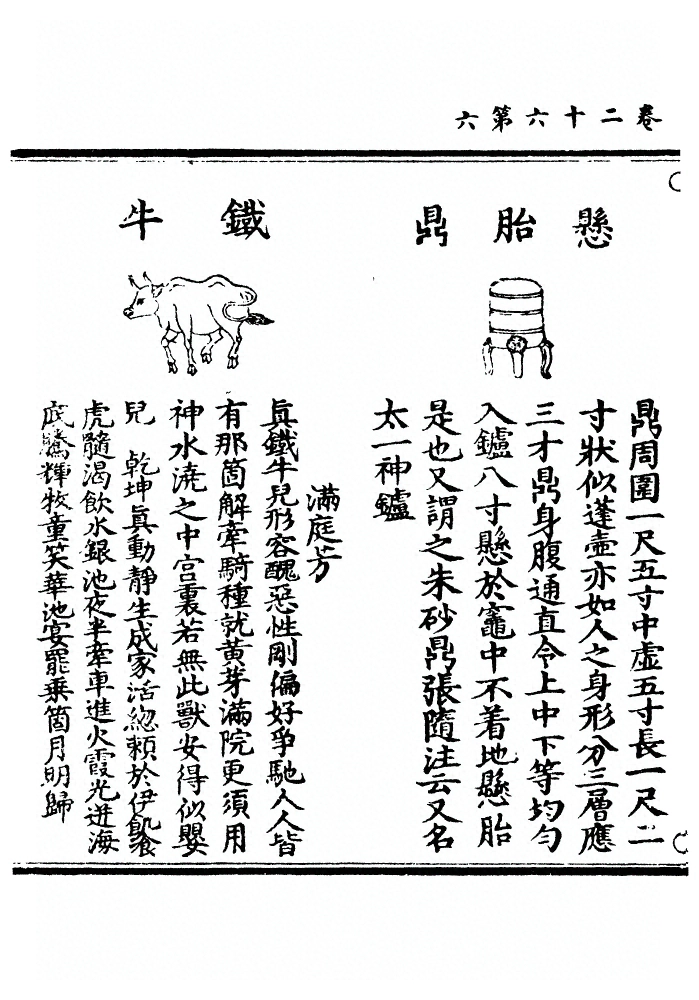 卷二十六第六
懸胎鼎
鼎周圍一尺五寸中虛五寸長一尺二
寸狀似蓬壺亦如人之身形分三層應
三才鼎身腹通直令上中下等均勻
入鑪八寸懸於竈中不着地懸胎
是也又謂之朱砂鼎張隨注云又名
太一神鑪
鐵牛
滿庭芳
真鐵牛兒形容醜惡性剛偏好爭馳人人皆
有那箇解牽騎種就黄芽滿院更須用
神水澆之中宮裏若無此獸安得似嬰
兒 乾坤真動靜生成家活緫賴於伊飢飡
虎髓渴飲水銀池夜半牽車進火霞光迸海
底騰輝牧童笑華池宴罷乘箇月明歸